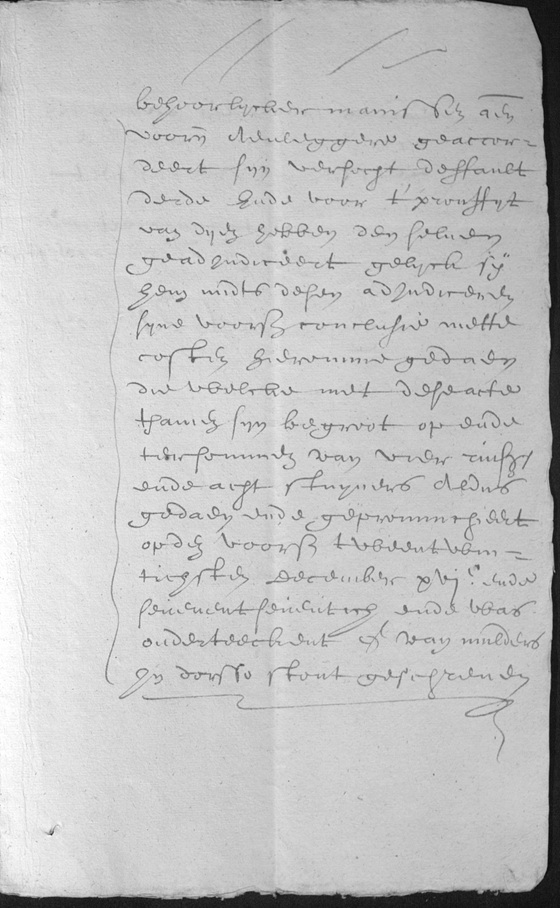 behoorlycker maniere den aen
voorn aenleggere geaccor-
deert syn versocht deffault
derde ende voor t'prouffyt
van dyen hebben den selven
geadjudiceert gelyck sy
hem midts desen adjudiceren
syne voors conclusie mette
costen hieromme gedaen
die welcke met dese acte
tsamen syn begroot op ende
ter sommen van vier rinsgl
ende acht stuyvers Aldus
gedaen ende gepronunchieert
opden voors tweentwin-
tichsten December xvjc ende
sevenentseventich ende was
onderteeckent van mulders
In dorso stont geschreven